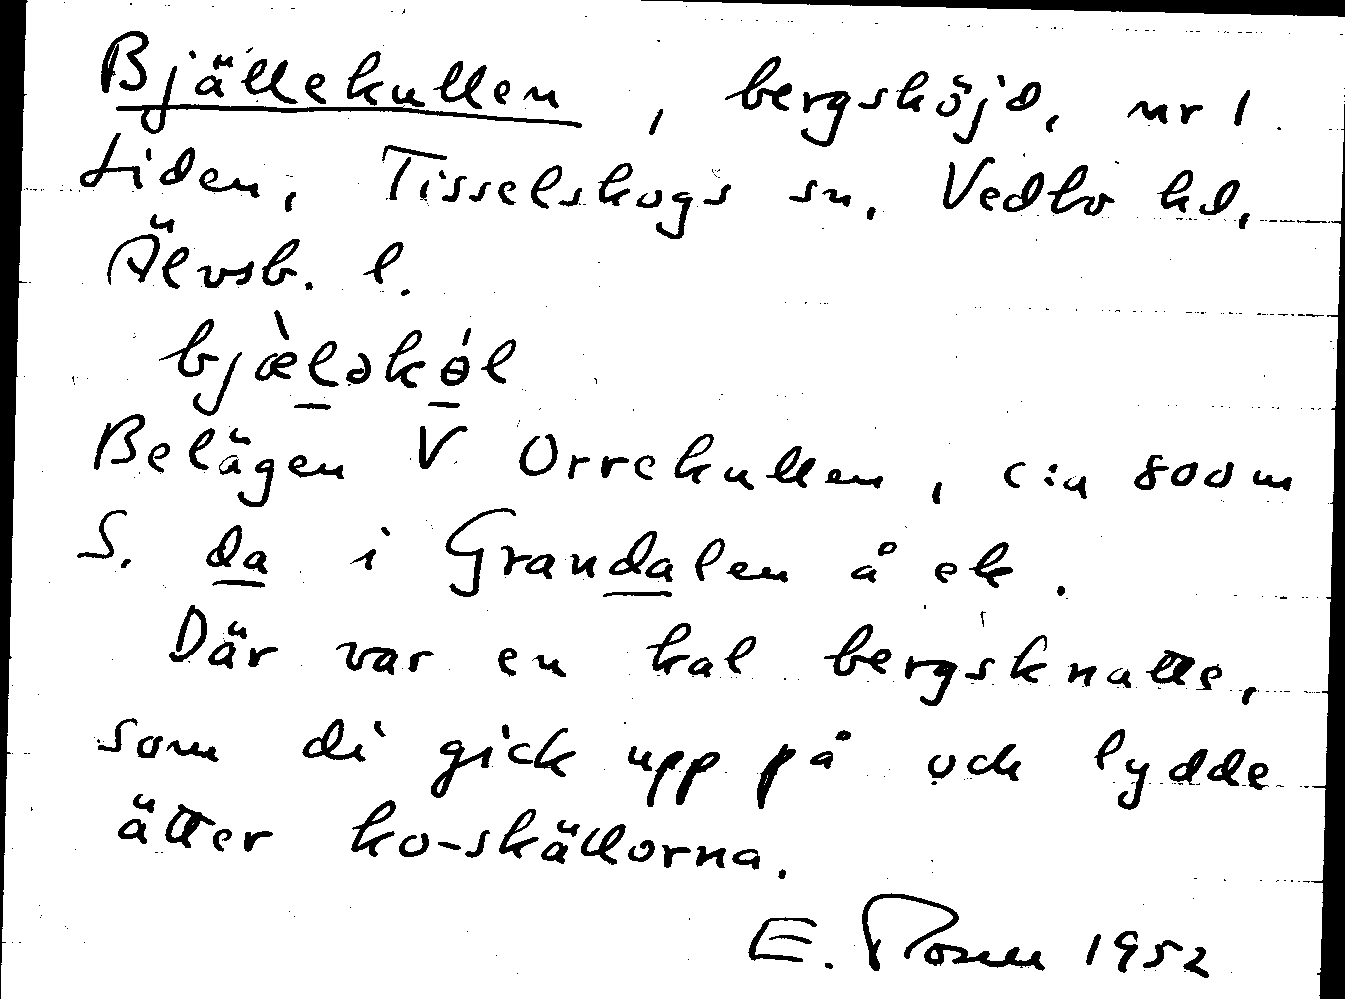 Bjällekullen, bergshöjd, nr 1
Liden, Tisselskogs sn, Vedbo hd,
Älvsb. l.
bjæ̀ləkɵ́l
Belägen V Orrekullen, c:a 800 m
S. da i Grandalen å ek.
Där var en kal bergsknatte,
som di gick upp på och lydde
ätter ko-skällorna.
E. Rosell 1952